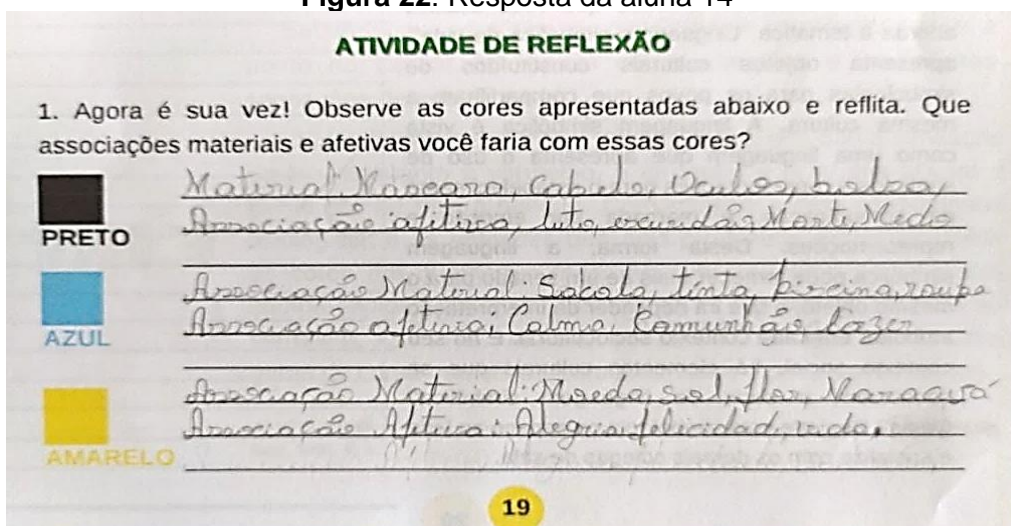 Figura 22. Resposta da aluna 14
ATIVIDADE DE REFLEXÃO
1. Agora é sua vez! Observe as cores apresentadas abaixo e reflita. Que
associações materiais e afetivas você faria com essas cores?
Material, Cabelo, Oculos, bolsa,
PRETO
Associação afitiva, luto, escuridão, Morte, Medo
Associação Material: Sacola, tinta, piscina, roupa
AZUL
Associação afetiva, Calma, Comunhão lazer
Associação Material: Moeda, sol, flor, Maracujá
Associação Afetiva: Alegria, felicidad,
AMARELO
19